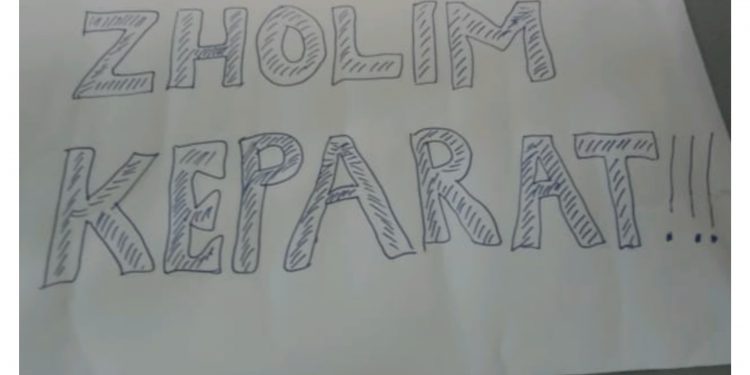 ZHOLIM
KEPARAT!!!